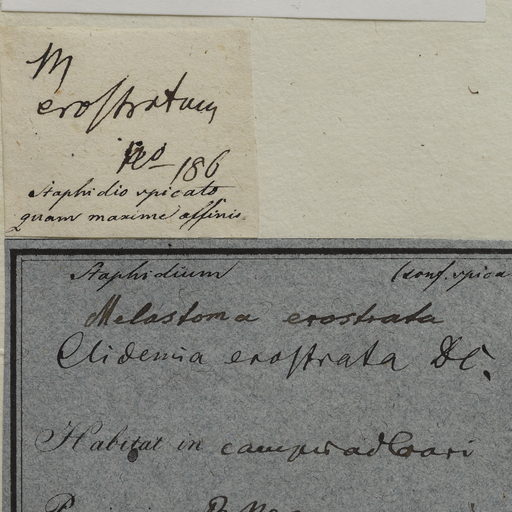 M
eroſtratum
No 186
Staphidio spicato
quam maxime affinis
Staphidium (conf. spica
Melastoma erostrata
Clidemia eroſtrata DC.
Habitat in campis ad